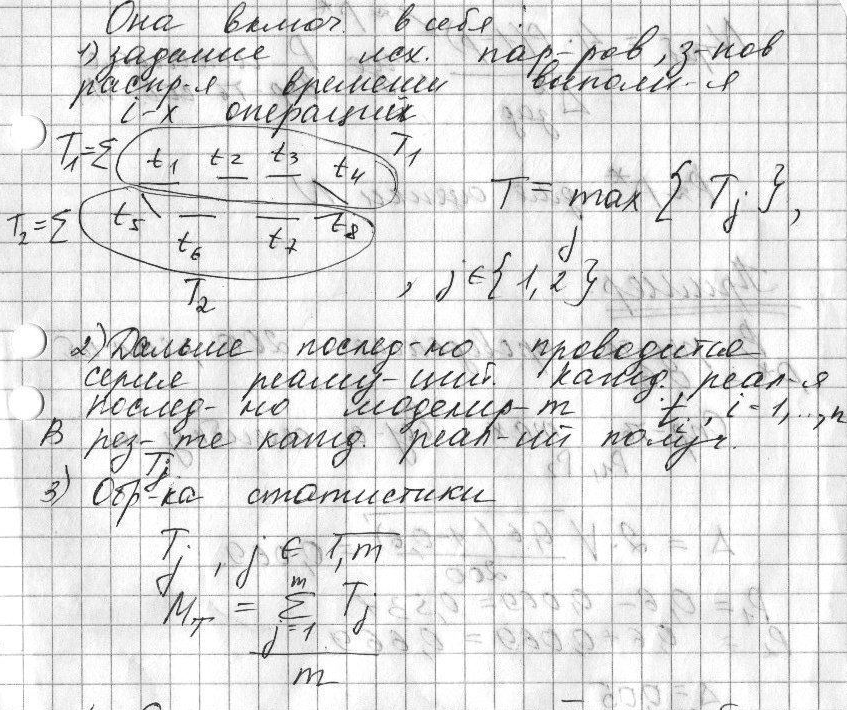 Она включ. в себя:
1) задание исх. пар-ров, з-нов
распр-я времени выполн-я
i-х операций
T₁=Σ t₁ t₂ t₃ t₄ T₁
T = max {Tⱼ},
j
T₂=Σ t₅ t₆ t₇ t₈
T₂
, j ∈ {1,2}
2) Дальше послед-но проводится
серия реализ-ций. кажд. реал-я
послед-но моделир-т tᵢ, i=1,...,n
В рез-те кажд. реал-ий получ.
Tⱼ
3) Обр-ка статистики
Tⱼ, j ∈ 1,m
m
M_T = Σ Tⱼ
j=1
m